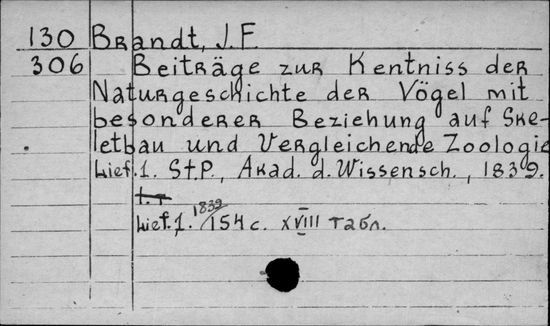 130 Brandt, J. F.
306 Beiträge zur Kentniss der
Naturgeschichte der Vögel mit
besonderer Beziehung auf Ske-
letbau und Vergleichende Zoologie
Lief. 1. St.P., Akad. d. Wissensch., 1839.
Lief. 1. 1839 154 с. XVIII табл.